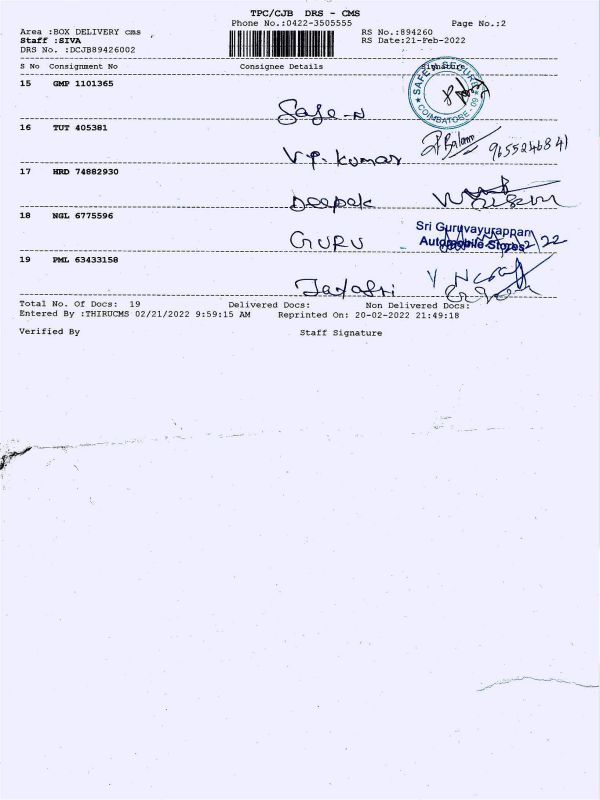 TPC/CJB DRS - CMS
Phone No.:0422-3505555 Page No.:2
Area :BOX DELIVERY CMS RS No.:894260
Staff :SIVA RS Date:21-Feb-2022
DRS No. :DCJB89426002
S No Consignment No Consignee Details Signature
15 GMP 1101365
SAFE N SECURE
COIMBATORE - 09
Safe-N
16 TUT 405381
V.P. Kumar 9655246841
17 HRD 74882930
Deepak
18 NGL 6775596
Sri Guruvayurappan
GURU Automobile Stores
19 PML 63433158
Total No. Of Docs: 19 Delivered Docs: Non Delivered Docs:
Entered By :THIRUCMS 02/21/2022 9:59:15 AM Reprinted On: 20-02-2022 21:49:18
Verified By Staff Signature